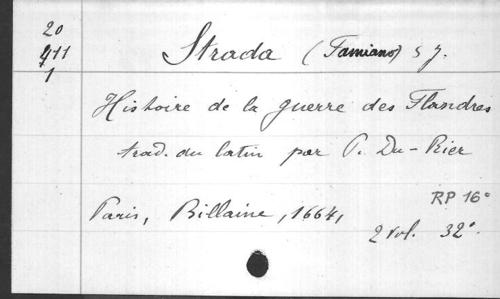 20
411
1
Strada (Famiano) S J.
Histoire de la guerre des Flandres
trad. du latin par P. Du-Rier
Paris, Billaine, 1664,
RP 16°
2 vol. 32°.